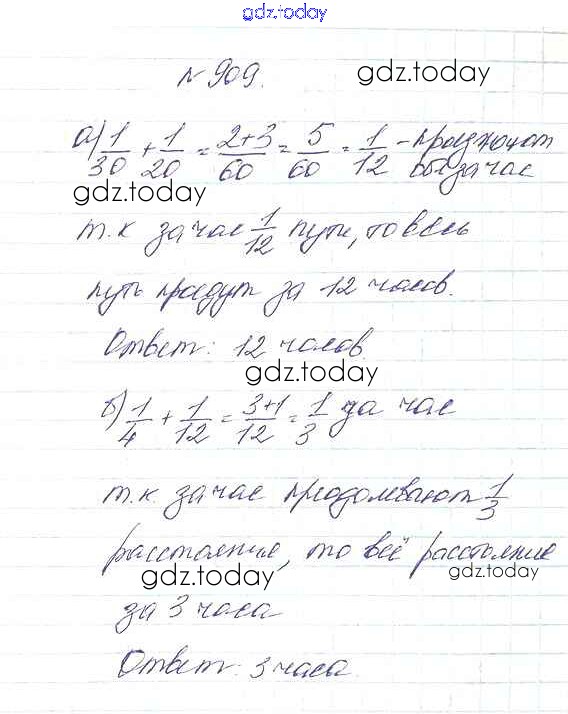 gdz.today
№ 909.
gdz.today
а) 1/30 + 1/20 = 2+3/60 = 5/60 = 1/12 –
за час
gdz.today
т.к за час 1/12 пути, то весь
путь пройдут за 12 часов.
Ответ: 12 часов.
gdz.today
б) 1/4 + 1/12 = 3+1/12 = 1/3 за час
т.к за час преодолевают 1/3
расстояния, то всё расстояние
gdz.today
gdz.today
за 3 часа
Ответ: 3 часа.
gdz.today